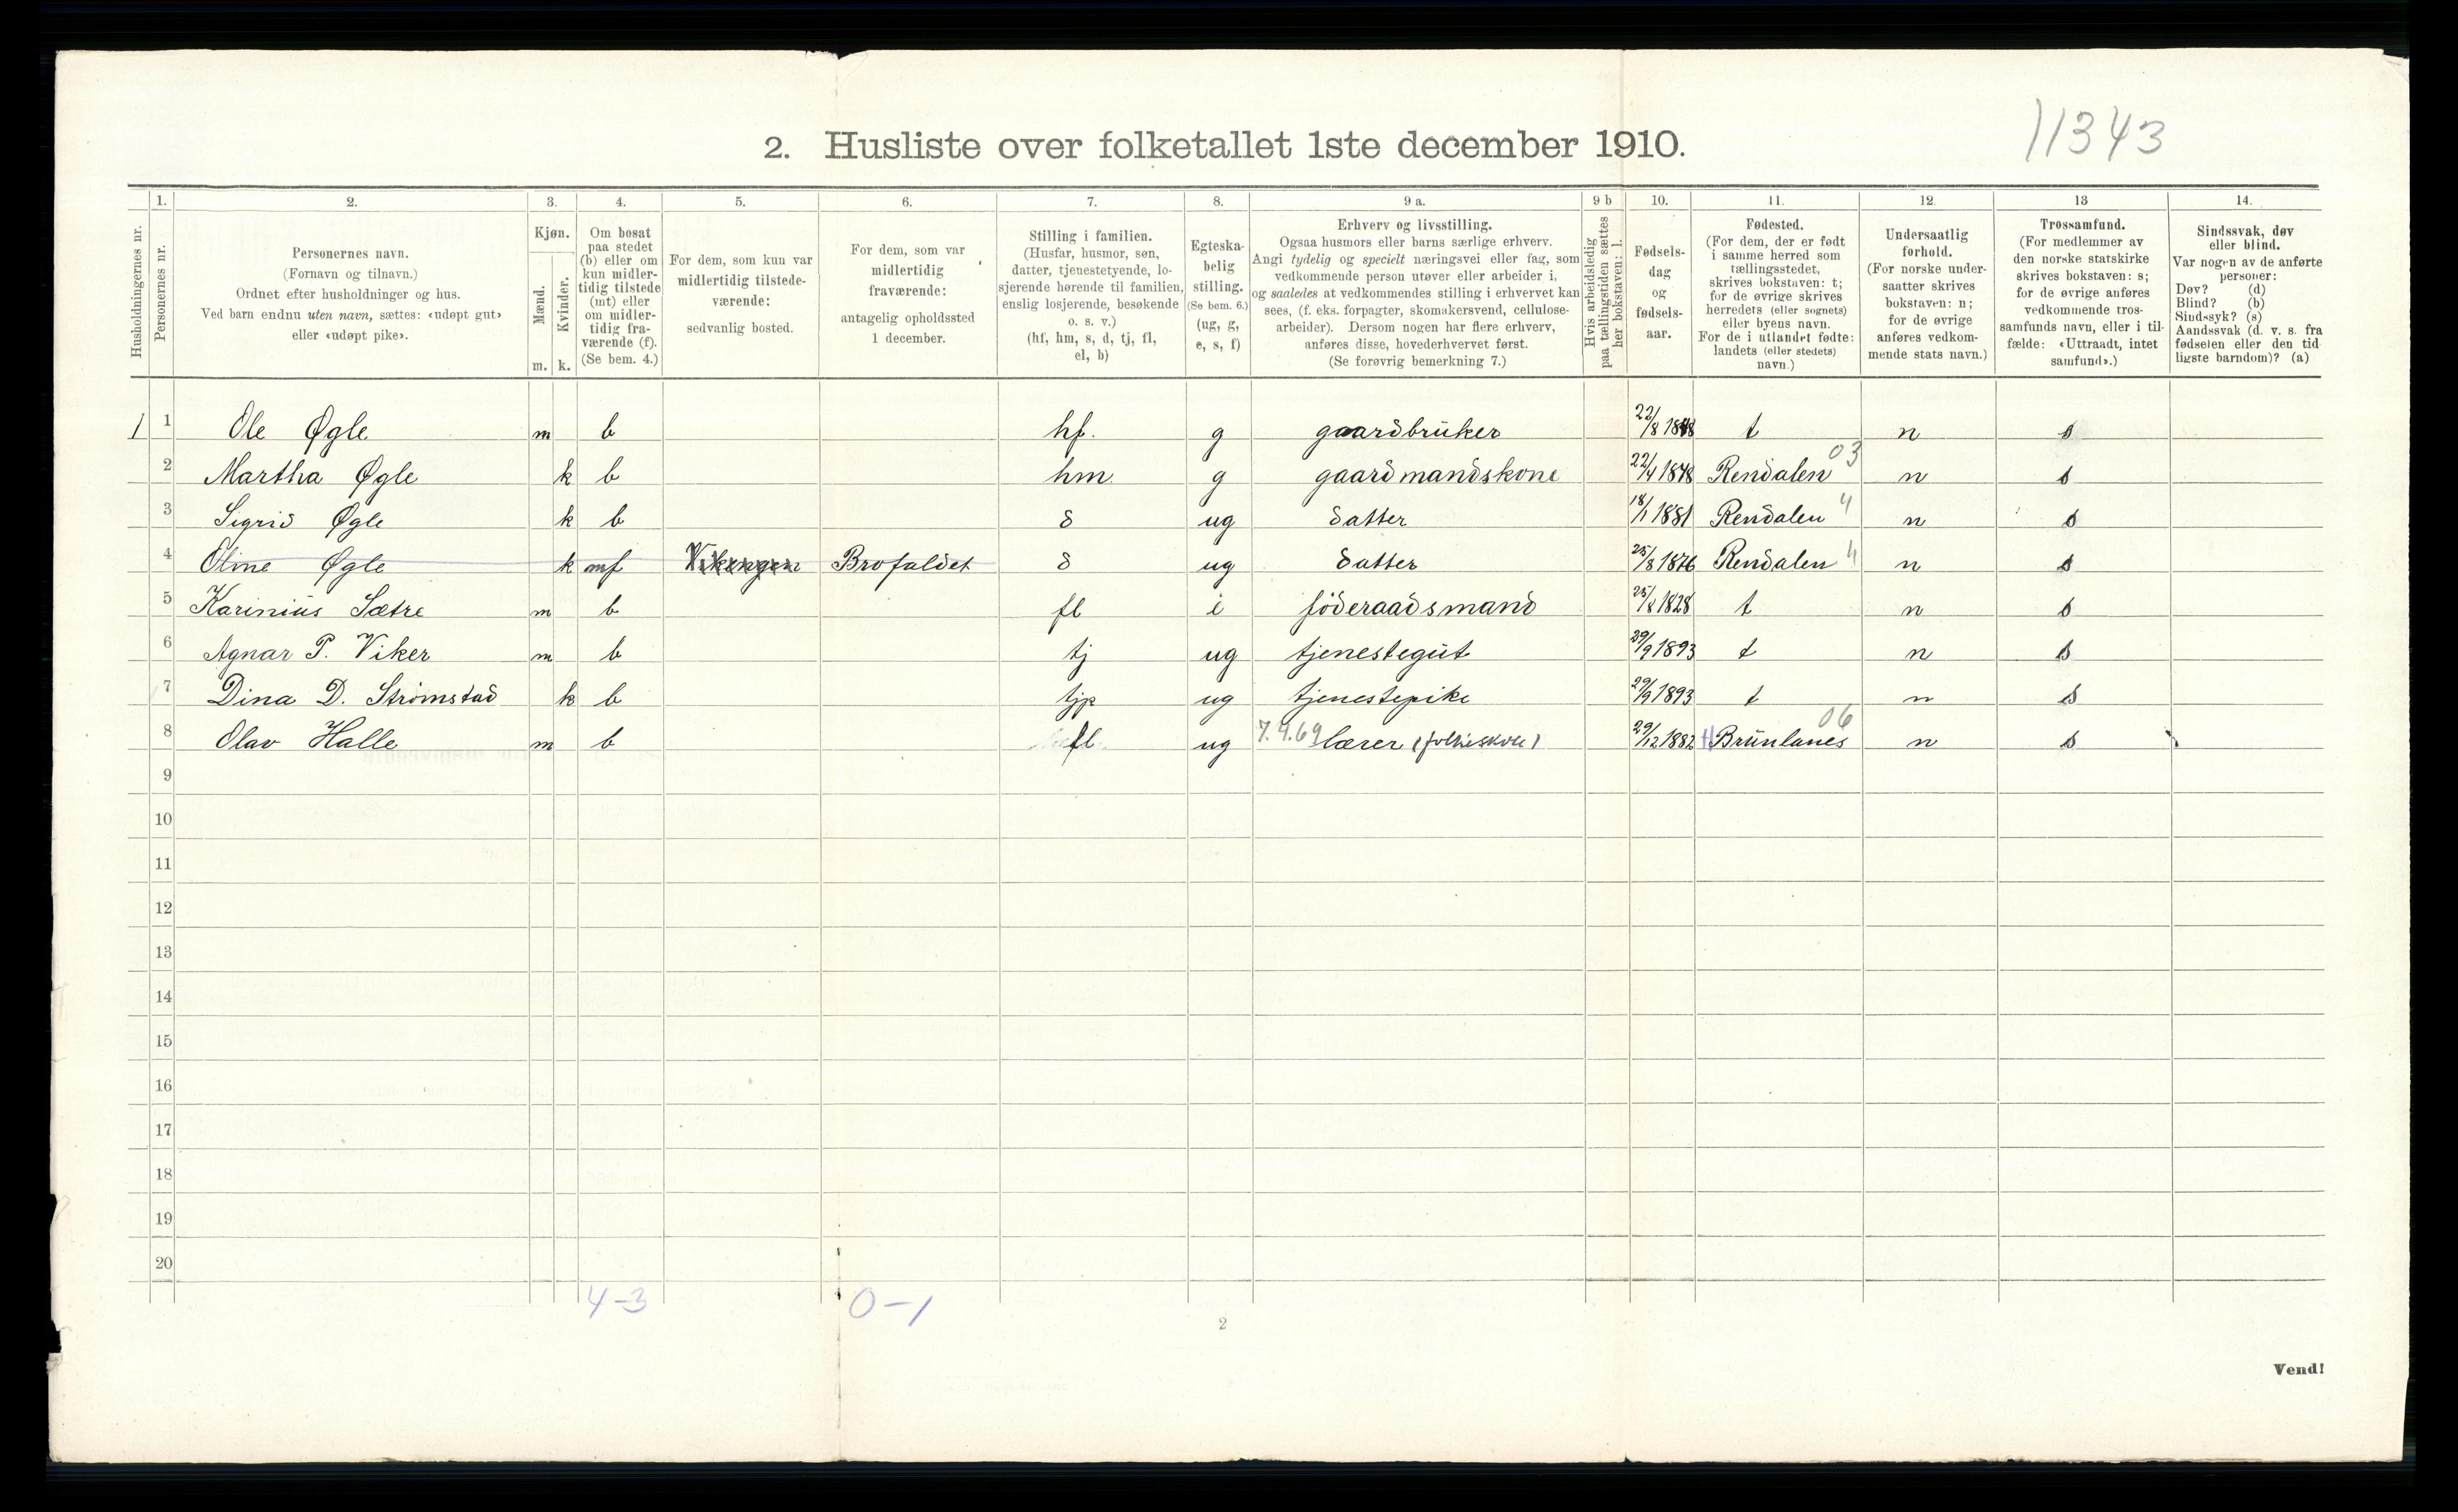 11343
2. Husliste over folketallet 1ste december 1910.
Husholdningernes nr.
1.
Personernes nr.
2.
Personernes navn.
(Fornavn og tilnavn.)
Ordnet efter husholdninger og hus.
Ved barn endnu uten navn, sættes: «udøpt gut»
eller «udøpt pike».
3.
Kjøn.
Mænd.
Kvinder.
m. k.
4.
Om bosat
paa stedet
(b) eller om
kun midler-
tidig tilstede
(mt) eller
om midler-
tidig fra-
værende (f).
(Se bem. 4.)
5.
For dem, som kun var
midlertidig tilstede-
værende:
sedvanlig bosted.
6.
For dem, som var
midlertidig
fraværende:
antagelig opholdssted
1 december.
7.
Stilling i familien.
(Husfar, husmor, søn,
datter, tjenestetyende, lo-
sjerende hørende til familien,
enslig losjerende, besøkende
o. s. v.)
(hf, hm, s, d, tj, fl,
el, b)
8.
Egteska-
belig
stilling.
(Se bem. 6.)
(ug, g,
e, s, f)
9 a.
Erhverv og livsstilling.
Ogsaa husmors eller barns særlige erhverv.
Angi tydelig og specielt næringsvei eller fag, som
vedkommende person utøver eller arbeider i,
og saaledes at vedkommendes stilling i erhvervet kan
sees, (f. eks. forpagter, skomakersvend, cellulose-
arbeider). Dersom nogen har flere erhverv,
anføres disse, hovederhvervet først.
(Se forøvrig bemerkning 7.)
9 b
Hvis arbeidsledig
paa tællingstiden sættes
her bokstaven: l.
10.
Fødsels-
dag
og
fødsels-
aar.
11.
Fødested.
(For dem, der er født
i samme herred som
tællingsstedet,
skrives bokstaven: t;
for de øvrige skrives
herredets (eller sognets)
eller byens navn.
For de i utlandet fødte:
landets (eller stedets)
navn.)
12.
Undersaatlig
forhold.
(For norske under-
saatter skrives
bokstaven: n;
for de øvrige
anføres vedkom-
mende stats navn.)
13
Trossamfund.
(For medlemmer av
den norske statskirke
skrives bokstaven: s;
for de øvrige anføres
vedkommende tros-
samfunds navn, eller i til-
fælde: «Uttraadt, intet
samfund».)
14.
Sindssvak, døv
eller blind.
Var nogen av de anførte
personer:
Døv? (d)
Blind? (b)
Sindssyk? (s)
Aandssvak (d. v. s. fra
fødselen eller den tid
ligste barndom)? (a)
1 1 Ole Øgle m b hf. g gaardbruker 22/8 t n s
2 Martha Øgle k b hm g gaardmandskone 22/4 1848 Rendalen 03 n s
3 Sigrid Øgle k b d ug datter 18/1 1881 Rendalen 4 n s
4 Oline Øgle k mf Vikengen Brofaldet d ug datter 25/8 1876 Rendalen 4 n s
5 Karinius Sætre m b fl e föderaadsmand 25/8 1828 t n s
6 Agnar P. Viker m b tj ug tjenestegut 29/9 1893 t n s
7 Dina D. Strömstad k b tjp ug tjenestepike 29/9 1893 t n s
8 Olav Halle m b fl ug 7.9.69 lærer (folkeskole) 29/12 1882 H Brunlanes 06 n s
9
10
11
12
13
14
15
16
17
18
19
20
4-3 0-1
2
Vend!